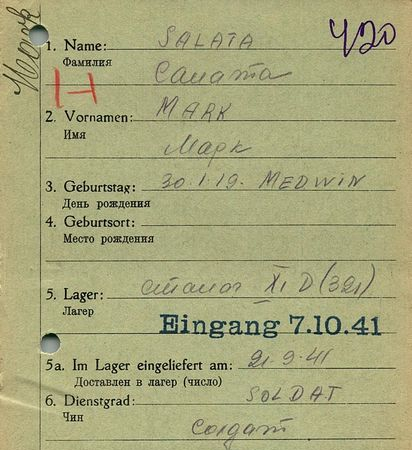 420
1. Name: SALATA
Фамилия
Салата
Н
2. Vornamen: MARK
Имя
Марк
3. Geburtstag: 30.1.19. MEDWIN
День рождения
4. Geburtsort:
Место рождения
5. Lager: сталаг XI D (321)
Лагер
Eingang 7.10.41
5a. Im Lager eingeliefert am: 21.9.41
Доставлен в лагер (число)
6. Dienstgrad: SOLDAT
Чин
Солдат